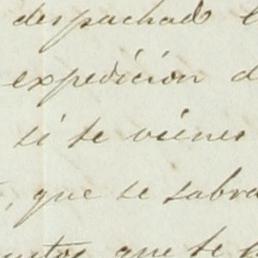 despachado
expedicion d
si te vienes
, que se sabra
que te